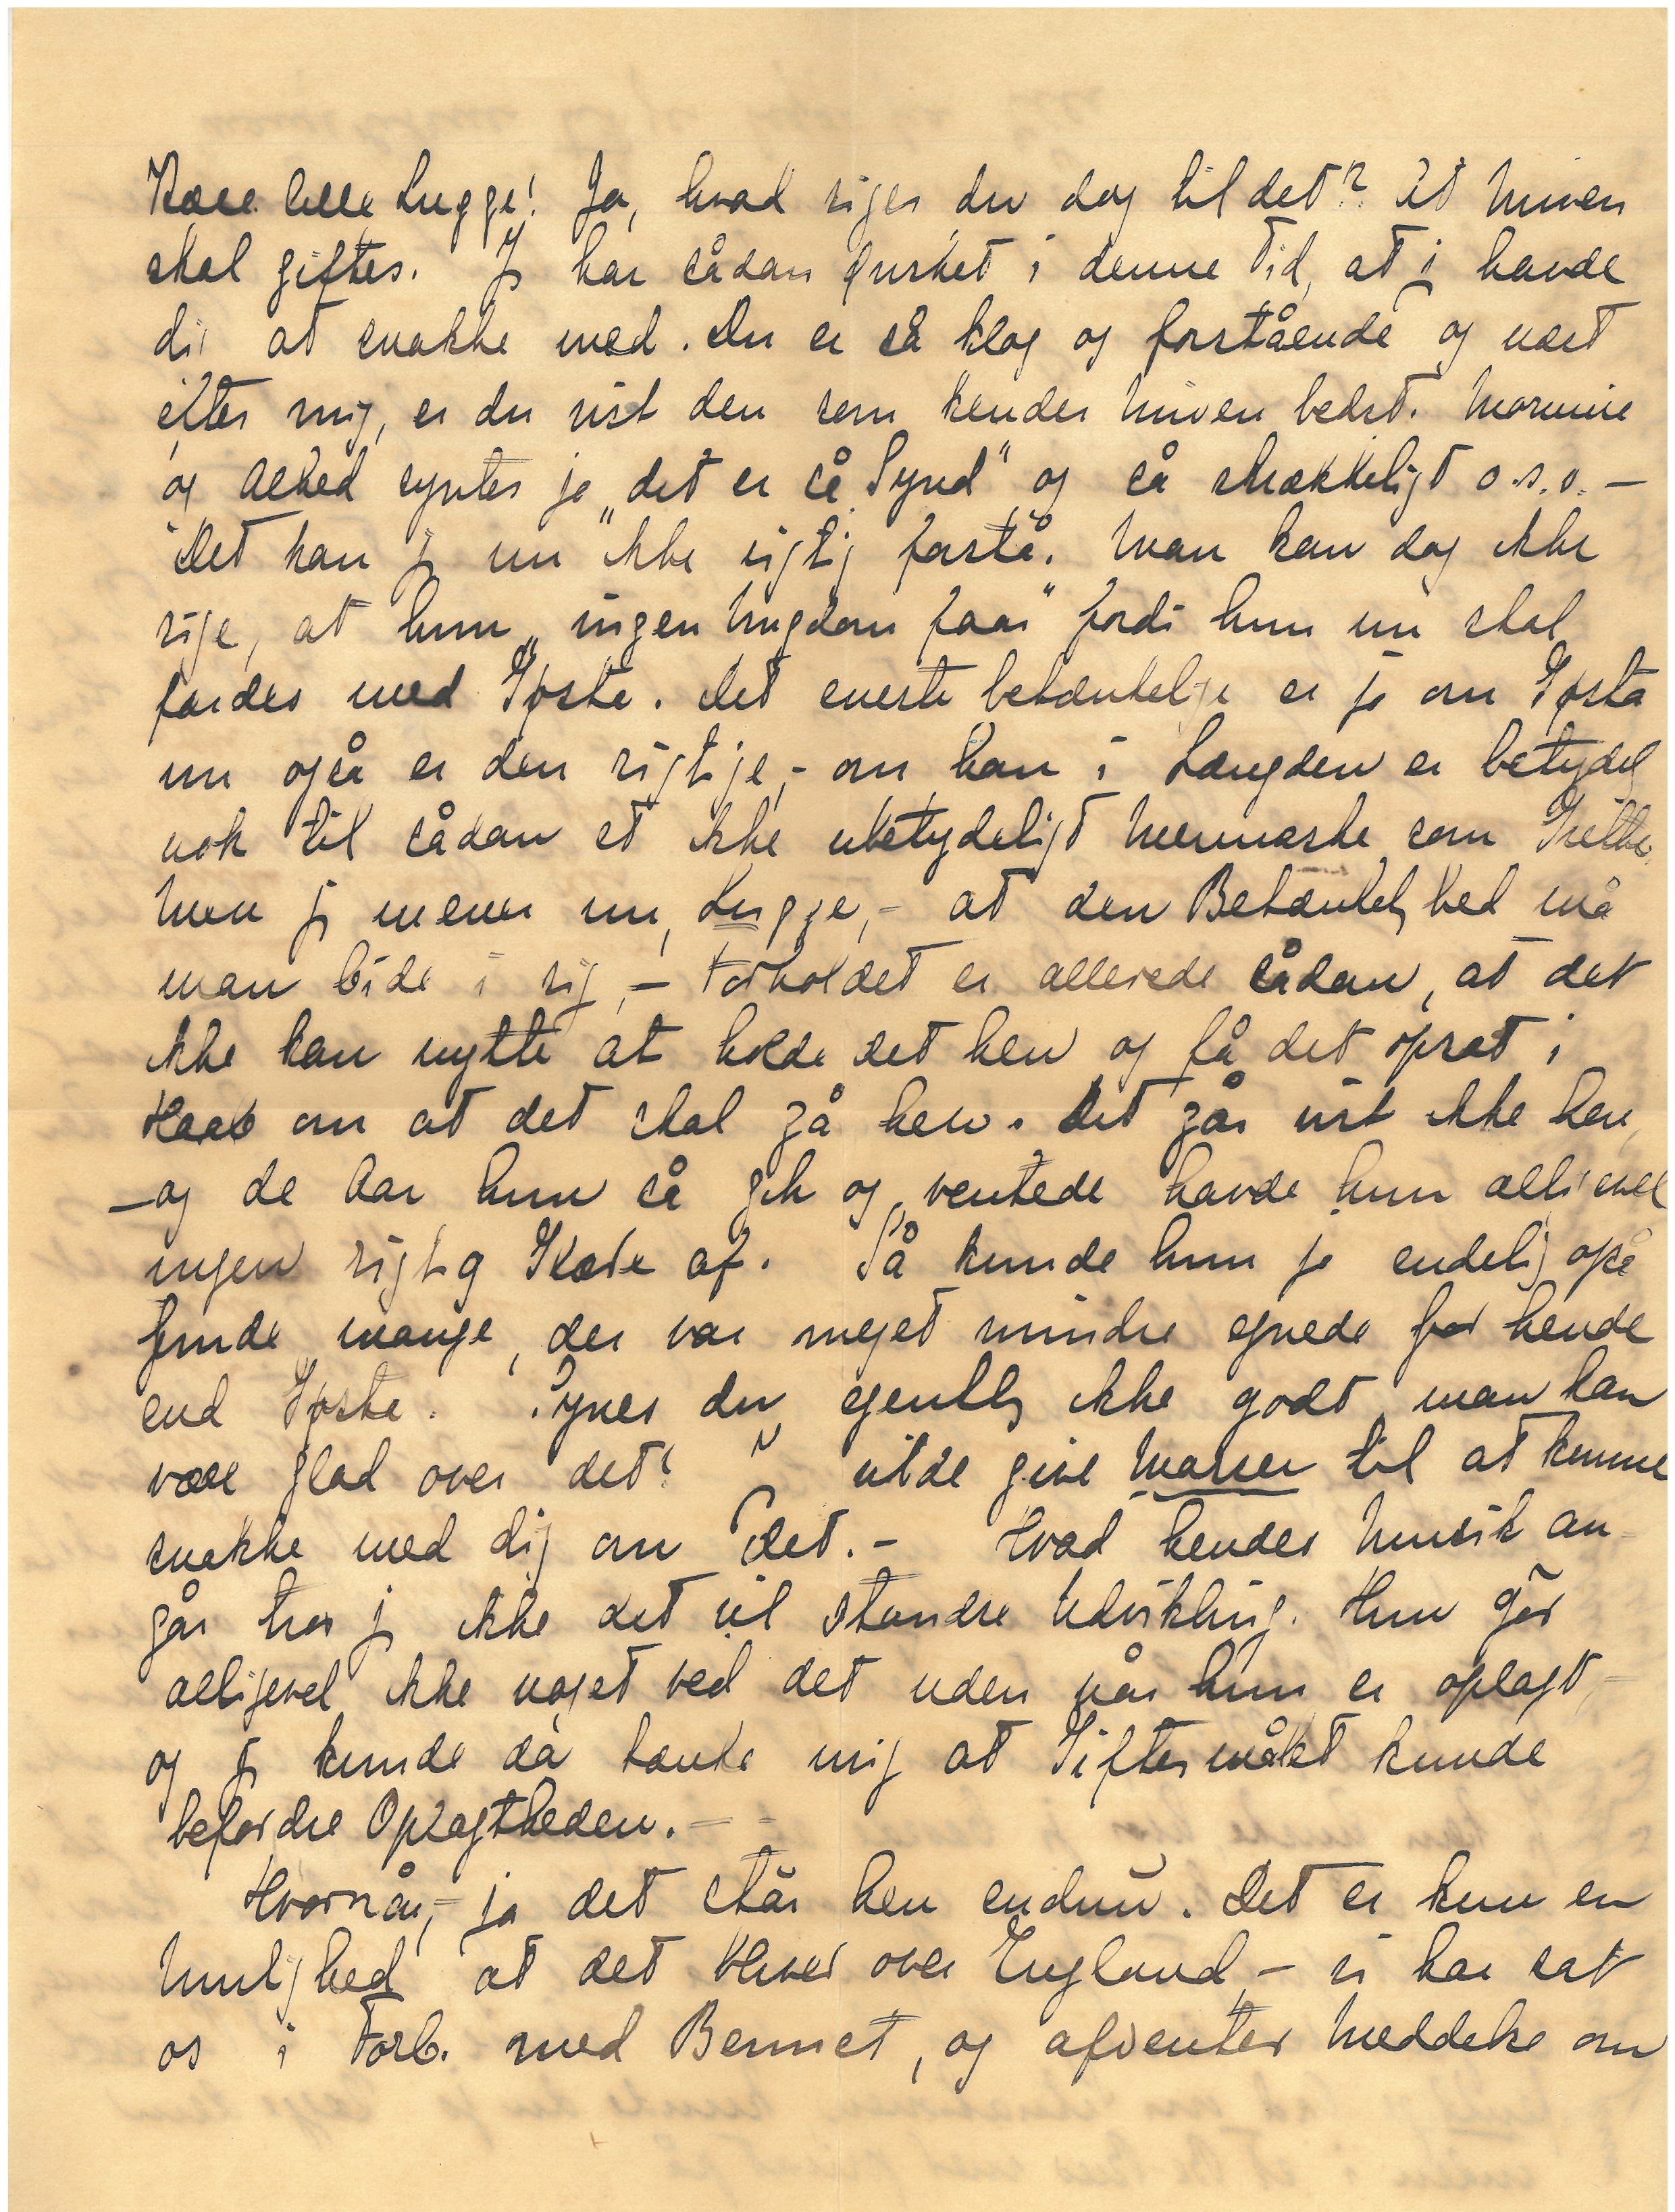 Kære lille Lugge! Ja, hvad siger du dog til det? At Niven
skal giftes. Jg har sådan ønsket i denne Tid, at jg havde
dig at snakke med. Du er så klog og forstående og næst
efter mig, er du vist den som kender Niven bedst. Mornine
og Alhed syntes jo „det er så Synd" og så skrækkeligt o.s.v. —
Det kan jg nu ikke rigtig forstå. Man kan dog ikke
sige, at hun „ingen Ungdom faar" fordi hun nu skal
færdes med Gøsta. Det eneste betænkelige er jo om Gøsta
nu også er den rigtige, - om han i Længden er betydelig
nok til sådan et ikke ubetydeligt Menneske som Grethe.
Men jg mener nu, Lugge, - at den Betænkelighed må
man bide i sig, - Forholdet er allerede sådan, at det
ikke kan nytte at holde det hen og få det opsat i
Haab om at det skal gå hen. Det går vist ikke hen,
— og de Aar hun så gik og ventede havde hun alligevel
ingen rigtig Glæde af. Så kunde hun jo endelig også
finde mange, der var meget mindre egnede for hende
end Gøsta. Synes du egentlig ikke godt man kan
være glad over det? Jg vilde give Masser til at kunne
snakke med dig om det. - Hvad hendes Musik an-
går tror jg ikke det vil standse Udvikling. Hun gør
alligevel ikke noget ved det uden når hun er oplagt, -
og jg kunde da tænke mig at Giftermålet kunde
befordre Oplagtheden. - -
Hvornår, - ja det står hen endnu. Det er kun en
Mulighed at det bliver over England, - vi har sat
os i Forb. med Bennet, og afventer Meddelse om